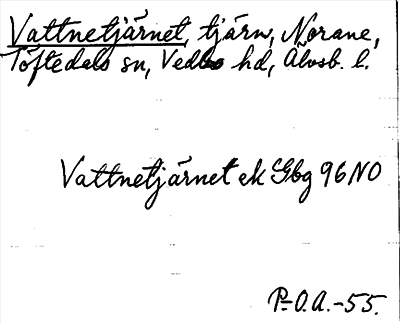 Vattnetjärnet, tjärn, Norane,
Töftedals sn, Vedbo hd, Älvsb. l.
Vattnetjärnet ek Gbg 96 NO
P-O.A.-55.